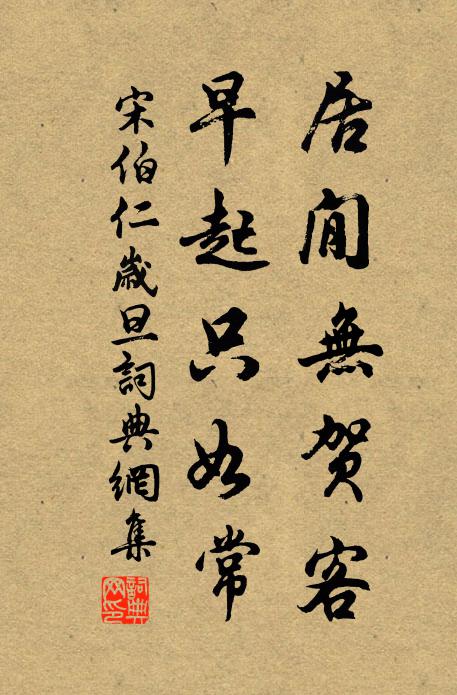 居閒無賀客
早起只如常
宋伯仁歲旦詞典網集
詞典網印